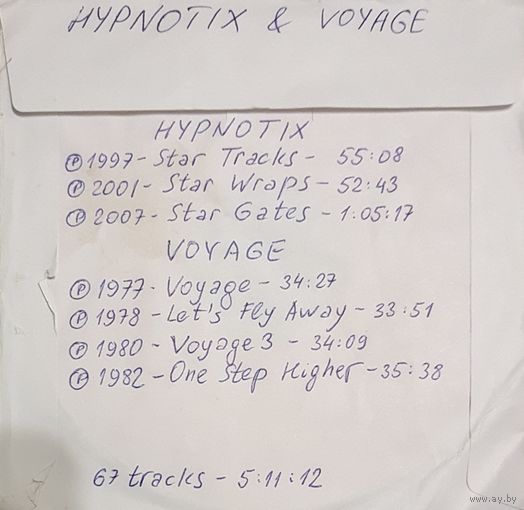 HYPNOTIX & VOYAGE
HYPNOTIX
℗ 1997 - Star Tracks - 55:08
℗ 2001 - Star Wraps - 52:43
℗ 2007 - Star Gates - 1:05:17
VOYAGE
℗ 1977 - Voyage - 34:27
℗ 1978 - Let's Fly Away - 33:51
℗ 1980 - Voyage 3 - 34:09
℗ 1982 - One Step Higher - 35:38
67 tracks - 5:11:12
www.ay.by